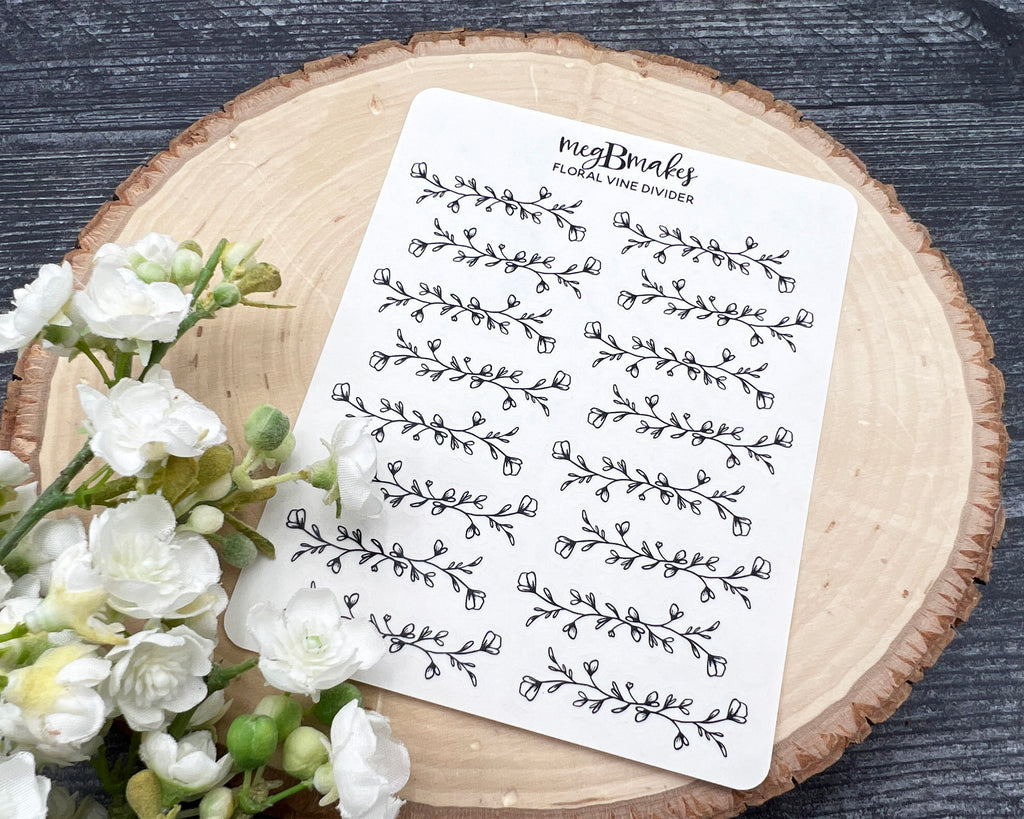 megBmakes
FLORAL VINE DIVIDER